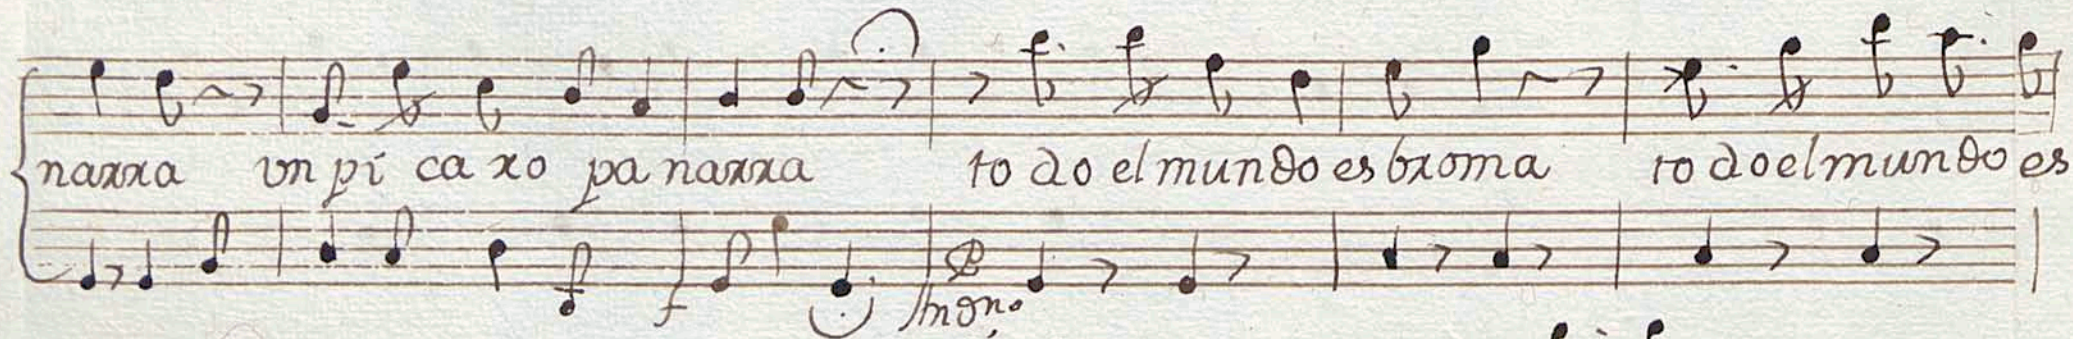 narra un pi ca ro pa narra to do el mundo es broma to do el mundo es
f f P